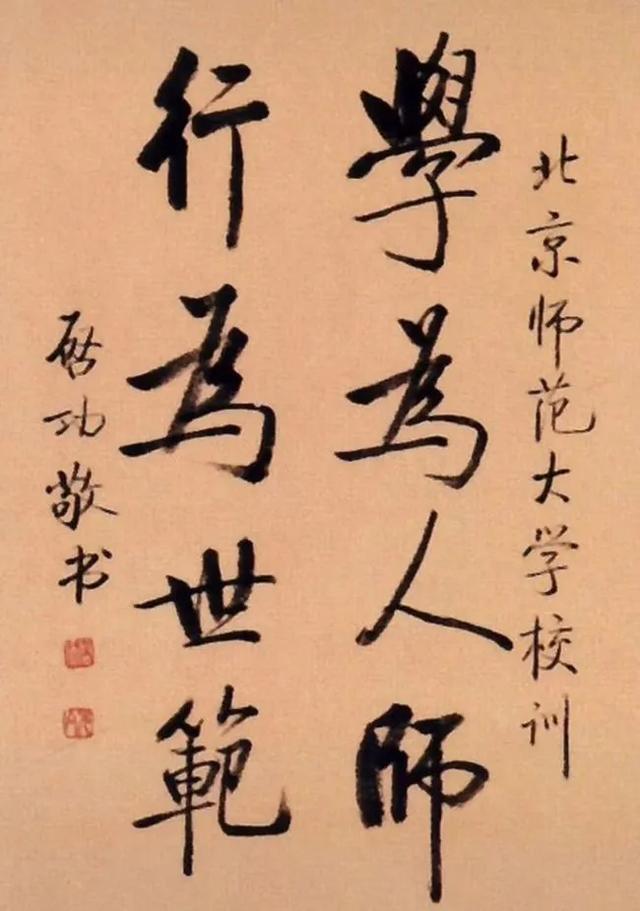 北京师范大学校训
學為人師
行為世範
启功敬书